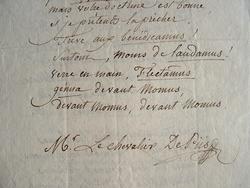 mais votre doctrine est bonne
si je prétends la prêcher.
Fuve aux benédicamus!
Surtout, moins de laudamus!
verre en main, Flectamus
genua devant Momus
devant Momus, devant Momus
Mr. Le chevalier De Piis